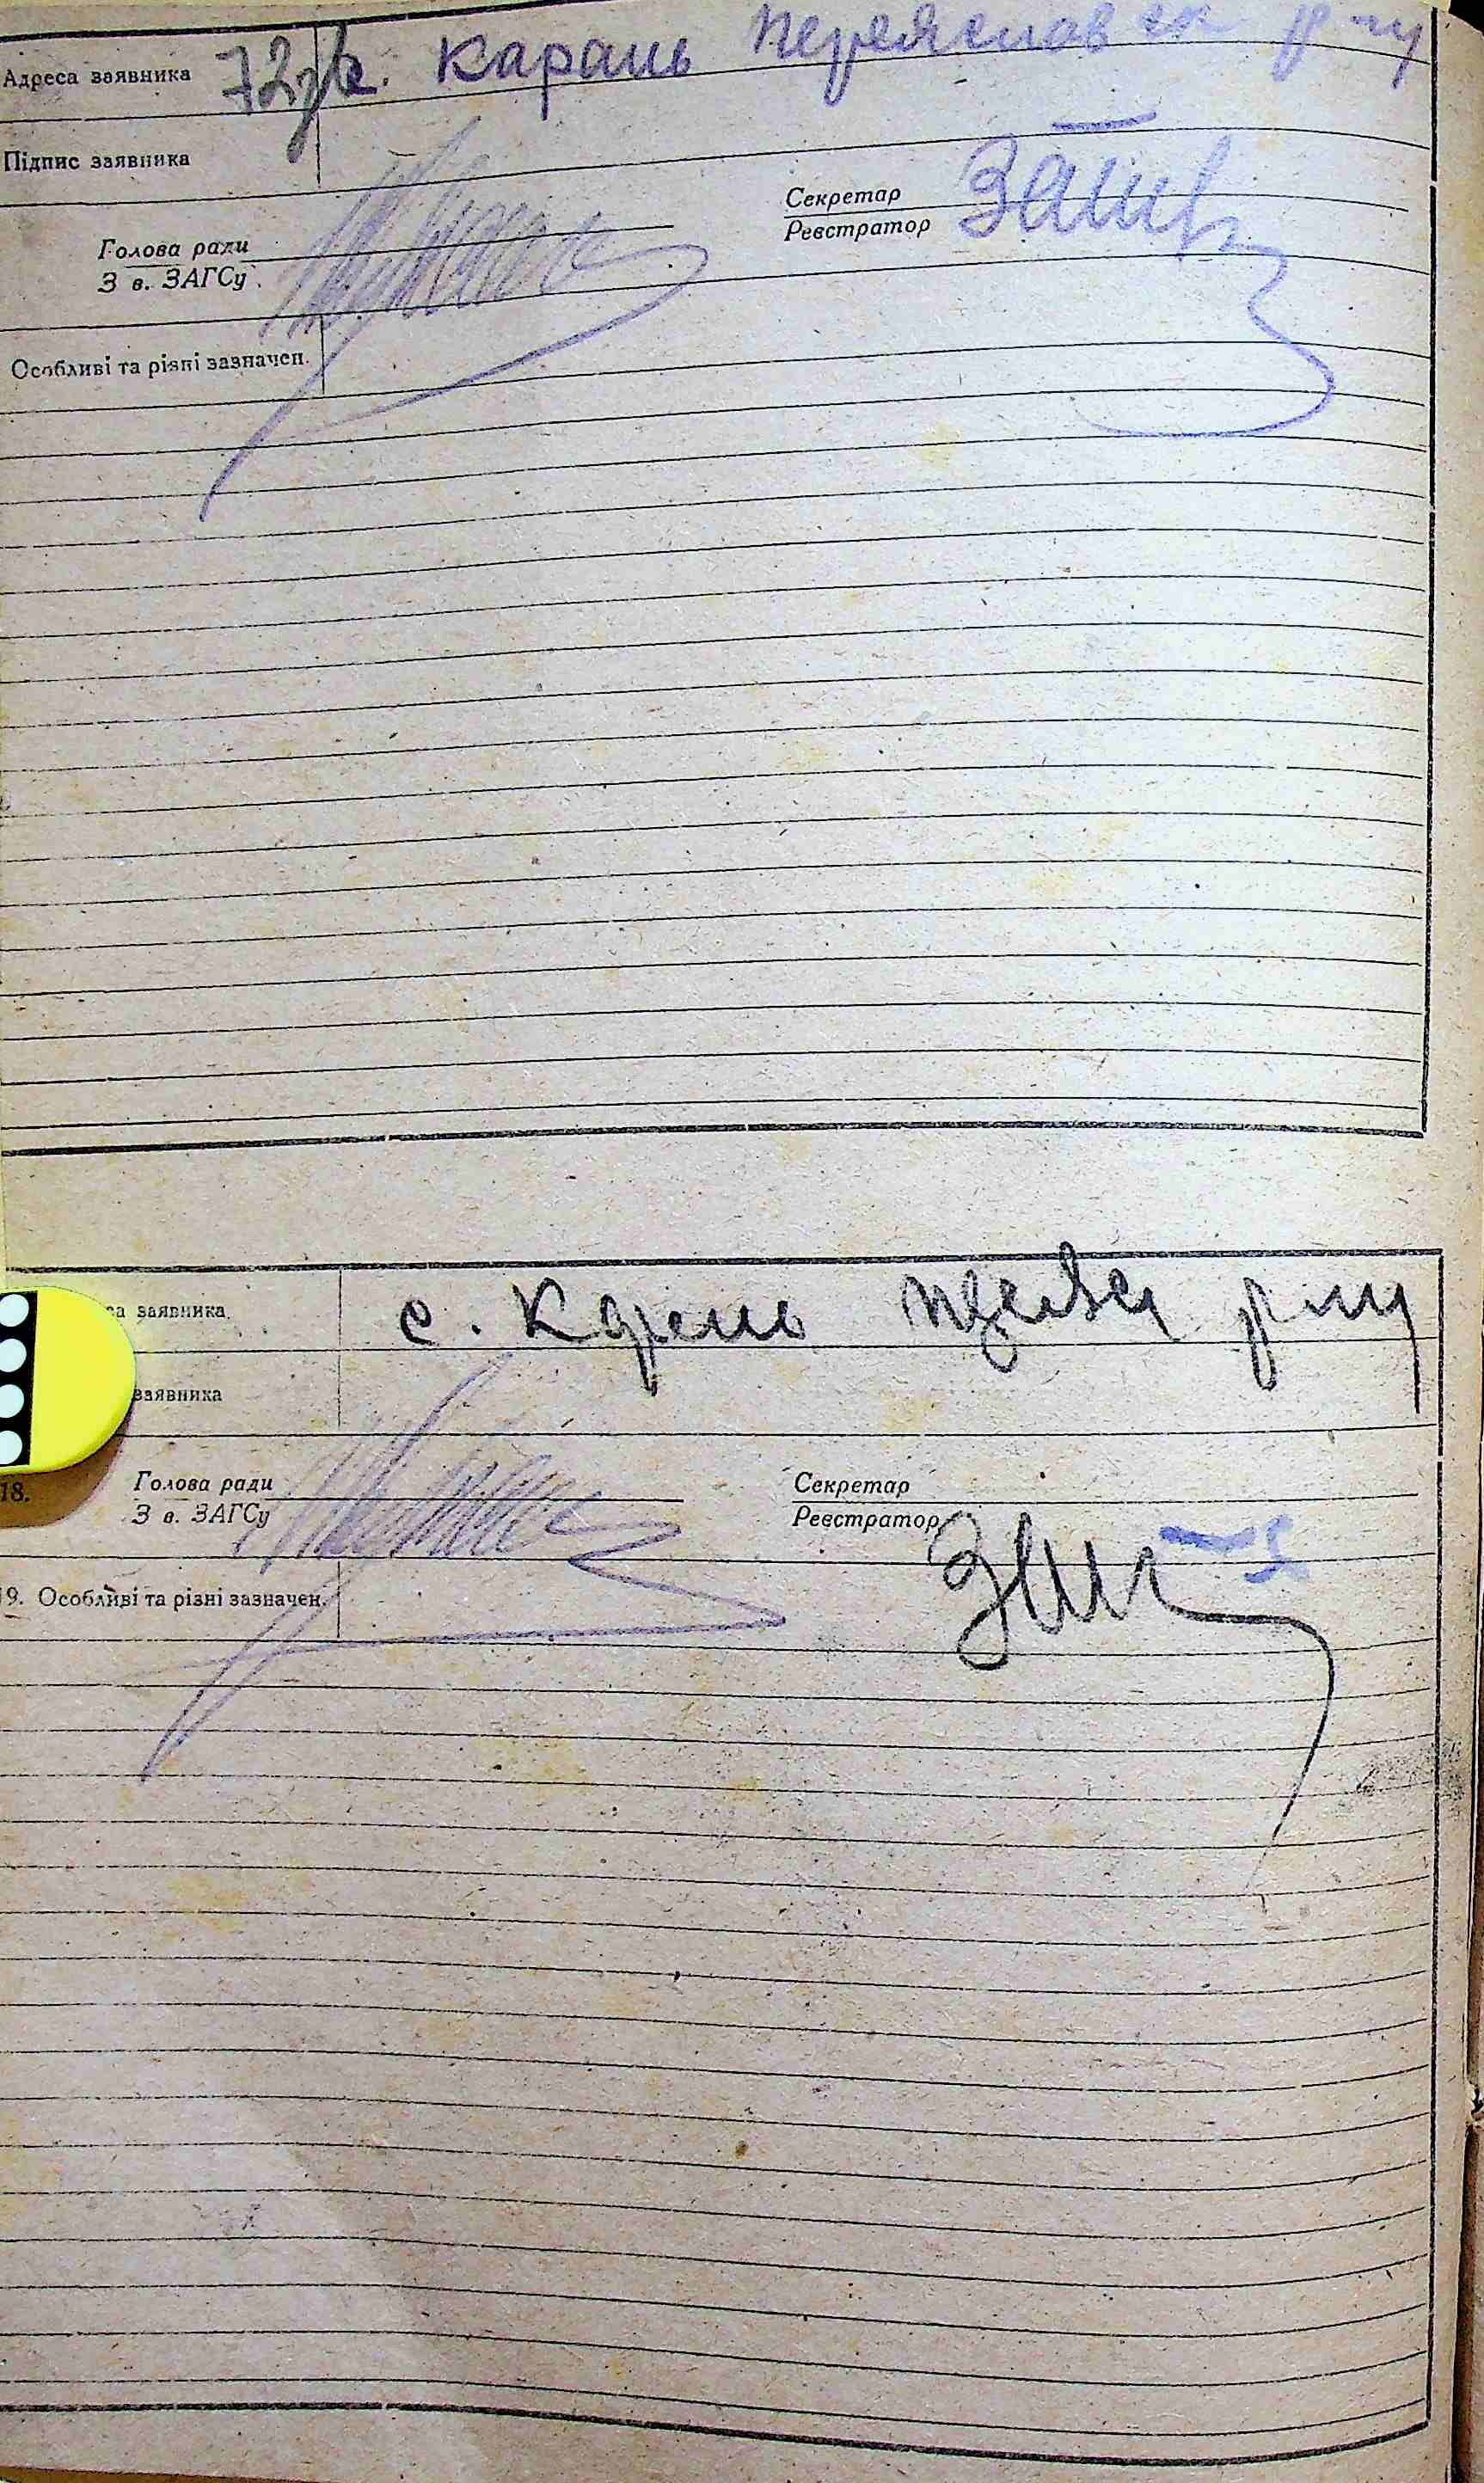 Адреса заявника 72зв. с. Карань Переяславск р-ну
Підпис заявника
Секретар
Реєстратор
Голова ради
З в. ЗАГСу
Особливі та різні зазначен.
са заявника с. Карань р-ну
заявника
18. Голова ради
З в. ЗАГСу
Секретар
Реєстратор
19. Особливі та різні зазначен.